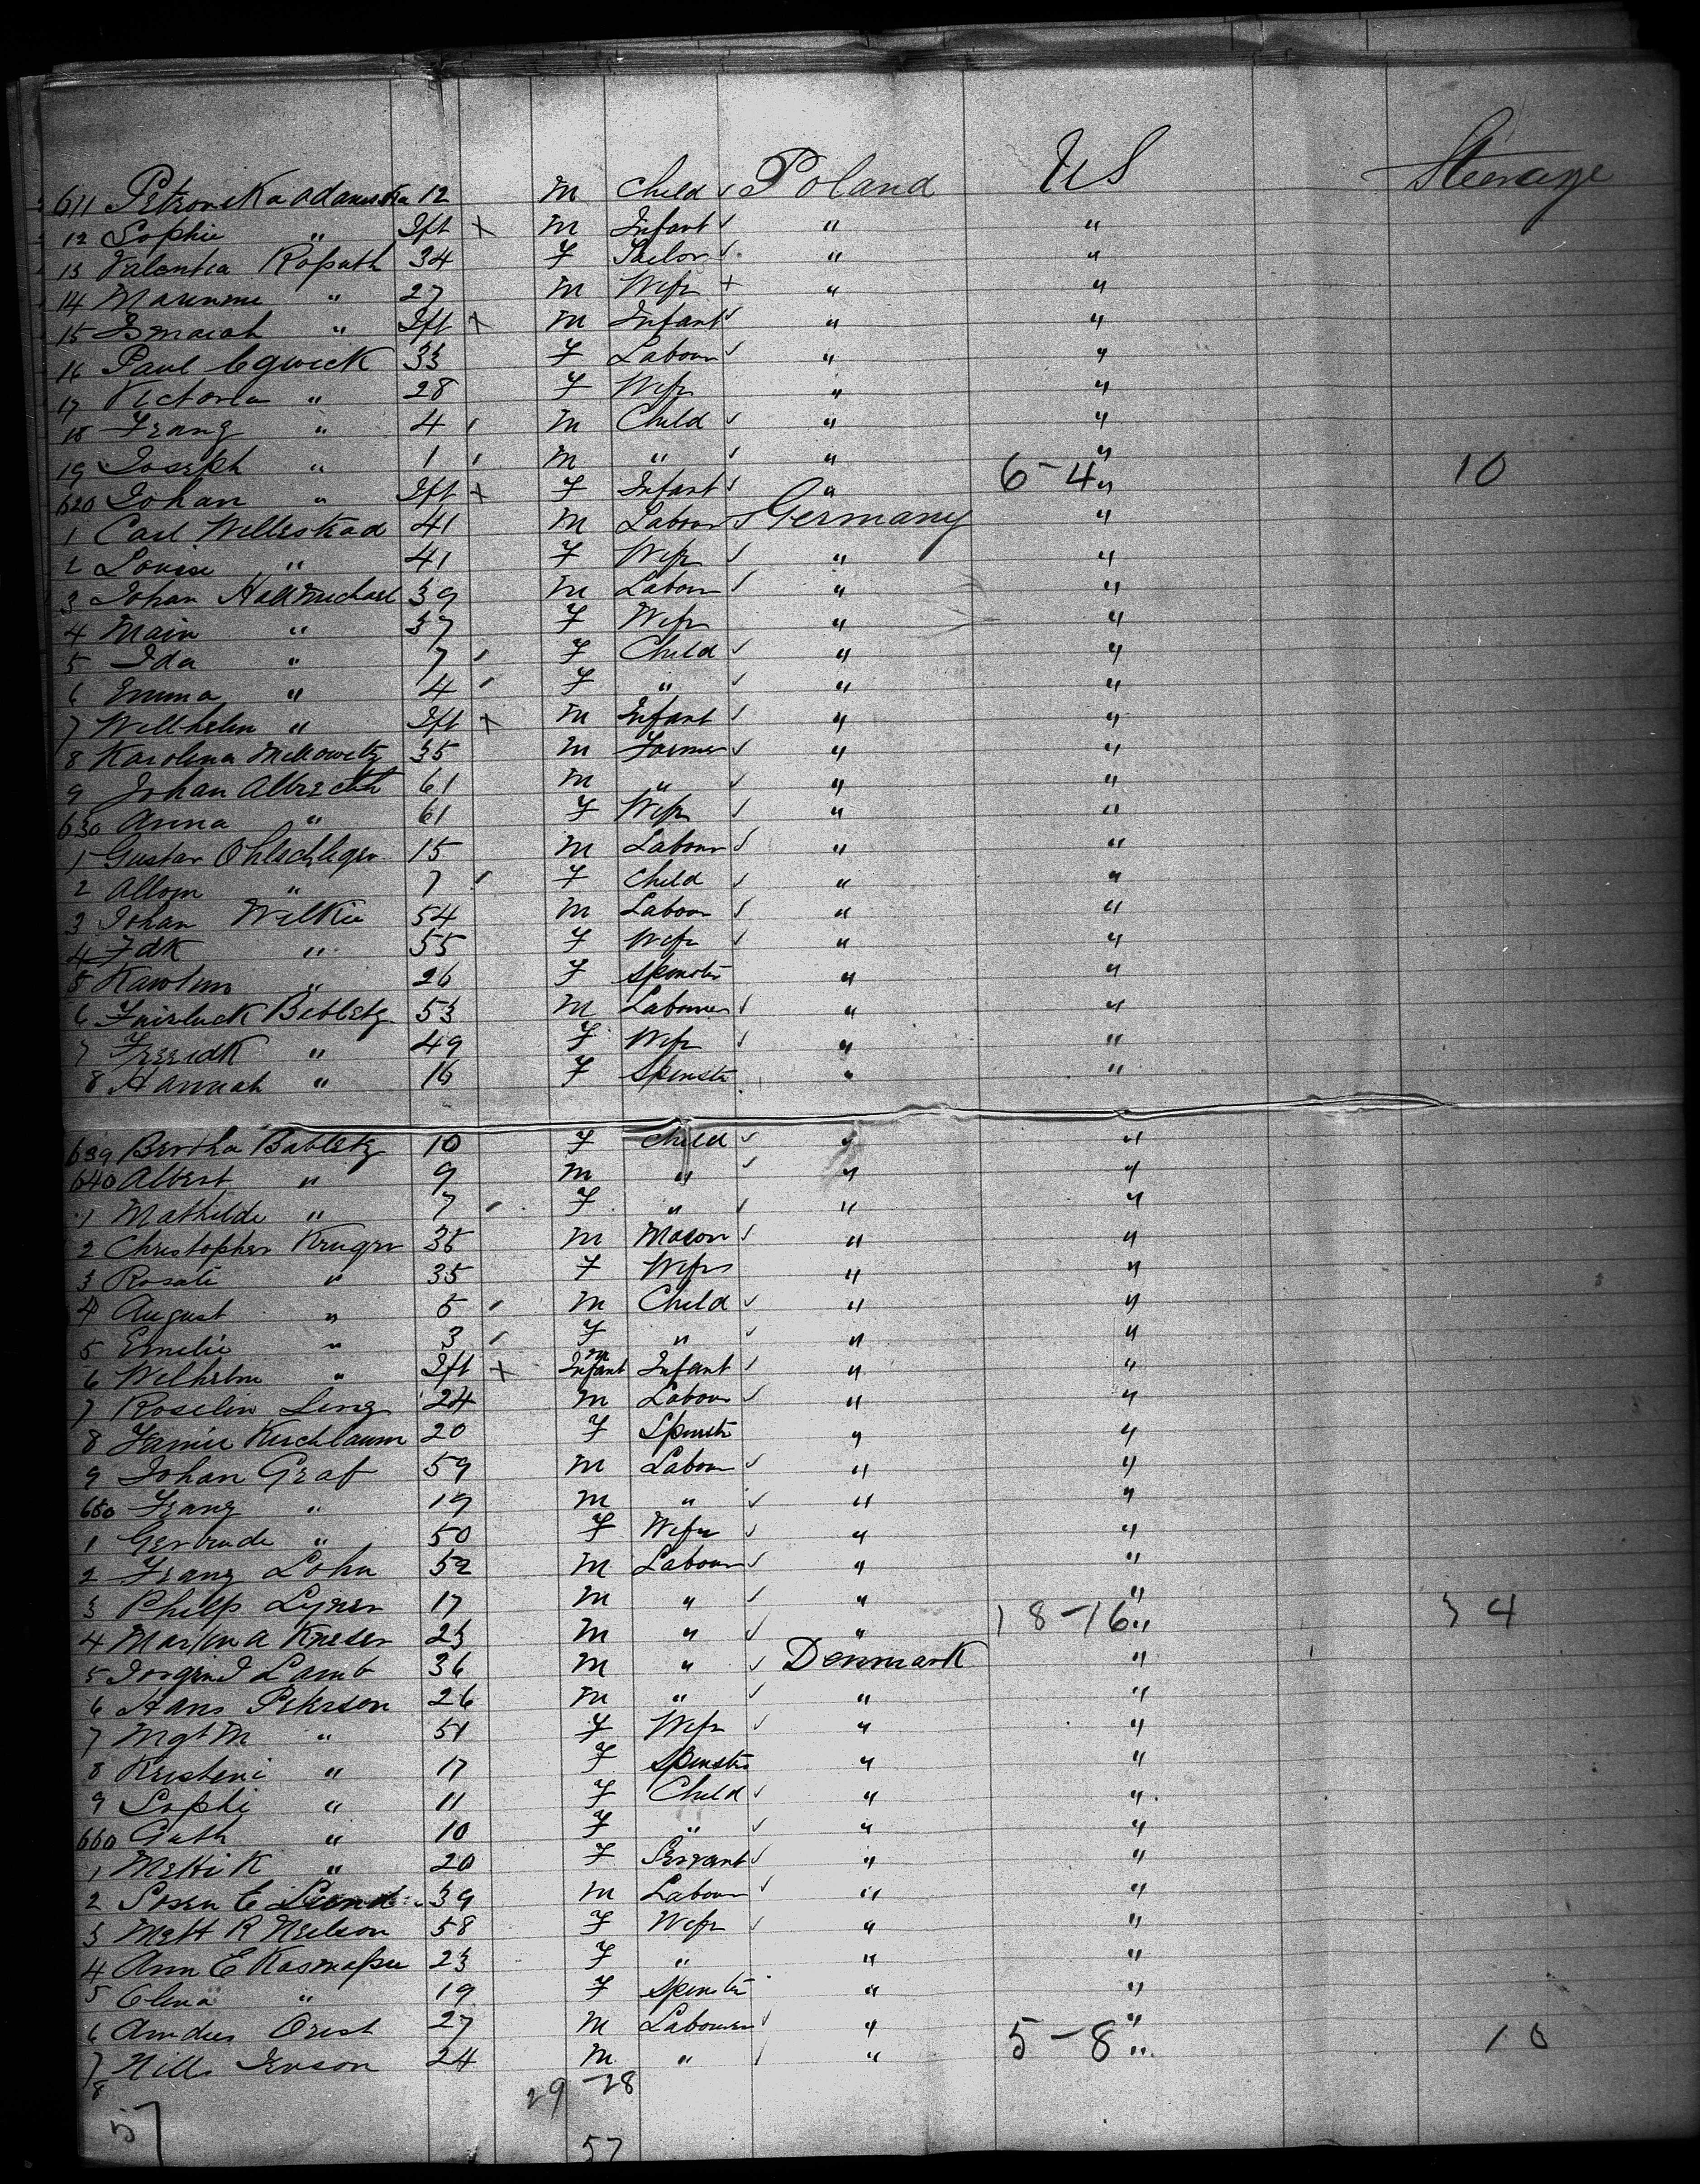 US Steerage
611 Petronska Adamska 12 M Child ✓ Poland
12 Sophie " Ift + M Infant ✓ " "
13 Valentia Koputh 34 F Tailor ✓ " "
14 Marienne " 27 M Wife + " "
15 " Ift + M Infant ✓ " "
16 Paul Cgwick 33 F Labour ✓ " "
17 Victoria " 28 F Wife " "
18 Franz " 4 M Child ✓ " "
19 Joseph " 1 M " ✓ " "
620 Johan " Ift + F Infant ✓ " 6-4 " 10
1 Carl Willeskad 41 M Labour ✓ Germany "
2 Louise " 41 F Wife ✓ " "
3 Johan 39 M Labour ✓ " "
4 Main " 37 F Wife " "
5 Ida " 7 F Child ✓ " "
6 Emma " 4 F " ✓ " "
7 Willhelm " Ift + M Infant ✓ " "
8 Karolina Milkowitz 35 M Farmer ✓ " "
9 Johan Albrecht 61 M " ✓ " "
630 Anna " 61 F Wife ✓ " "
1 Gustav Ohlschliger 15 M Labour ✓ " "
2 " 7 F Child ✓ " "
3 Johan Wilkie 54 M Labour ✓ " "
4 Fdk " 55 F Wife ✓ " "
5 " 26 F Spinster " "
6 Babletz 53 M Labourer ✓ " "
7 Freridk " 49 F Wife ✓ " "
8 Hannah " 16 F Spinstr " "
639 Bertha Babletz 10 F Child ✓ " "
640 Albert " 9 M " ✓ " "
1 Mathilde " 7 F " ✓ " "
2 Christopher Kruger 35 M Mason ✓ " "
3 Rosali " 35 F Wife " "
4 August " 5 M Child ✓ " "
5 Emelie " 3 F " ✓ " "
6 Wilhelm " Ift + M Infant Infant ✓ " "
7 Roselin Ling 24 M Labour ✓ " "
8 Fannie Kirchbaum 20 F Spinstr " "
9 Johan Graf 59 M Labour ✓ " "
650 Franz " 19 M " ✓ " "
1 Gertrude " 50 F Wife ✓ " "
2 Franz Lohn 52 M Labour ✓ " "
3 Philip 17 M " ✓ " "
4 Martin A Kneser 23 M " ✓ " 18-16 " 34
5 Lamb 36 M " ✓ Denmark "
6 Hans Peterson 26 M " ✓ " "
7 Mgt M " 51 F Wife ✓ " "
8 Kristeni " 17 F Spinster " "
9 Sophi " 11 F Child ✓ " "
660 " 10 F " ✓ " "
1 Metti K " 20 F Servant ✓ " "
2 39 M Labour ✓ " "
3 Mett R Neilson 58 F Wife ✓ " "
4 Ann E 23 F " " "
5 Elena " 19 F Spinster " "
6 27 M Labourer ✓ " "
7 Nills Jenson 24 M " ✓ " 5-8 " 13
8
29-28
57
57